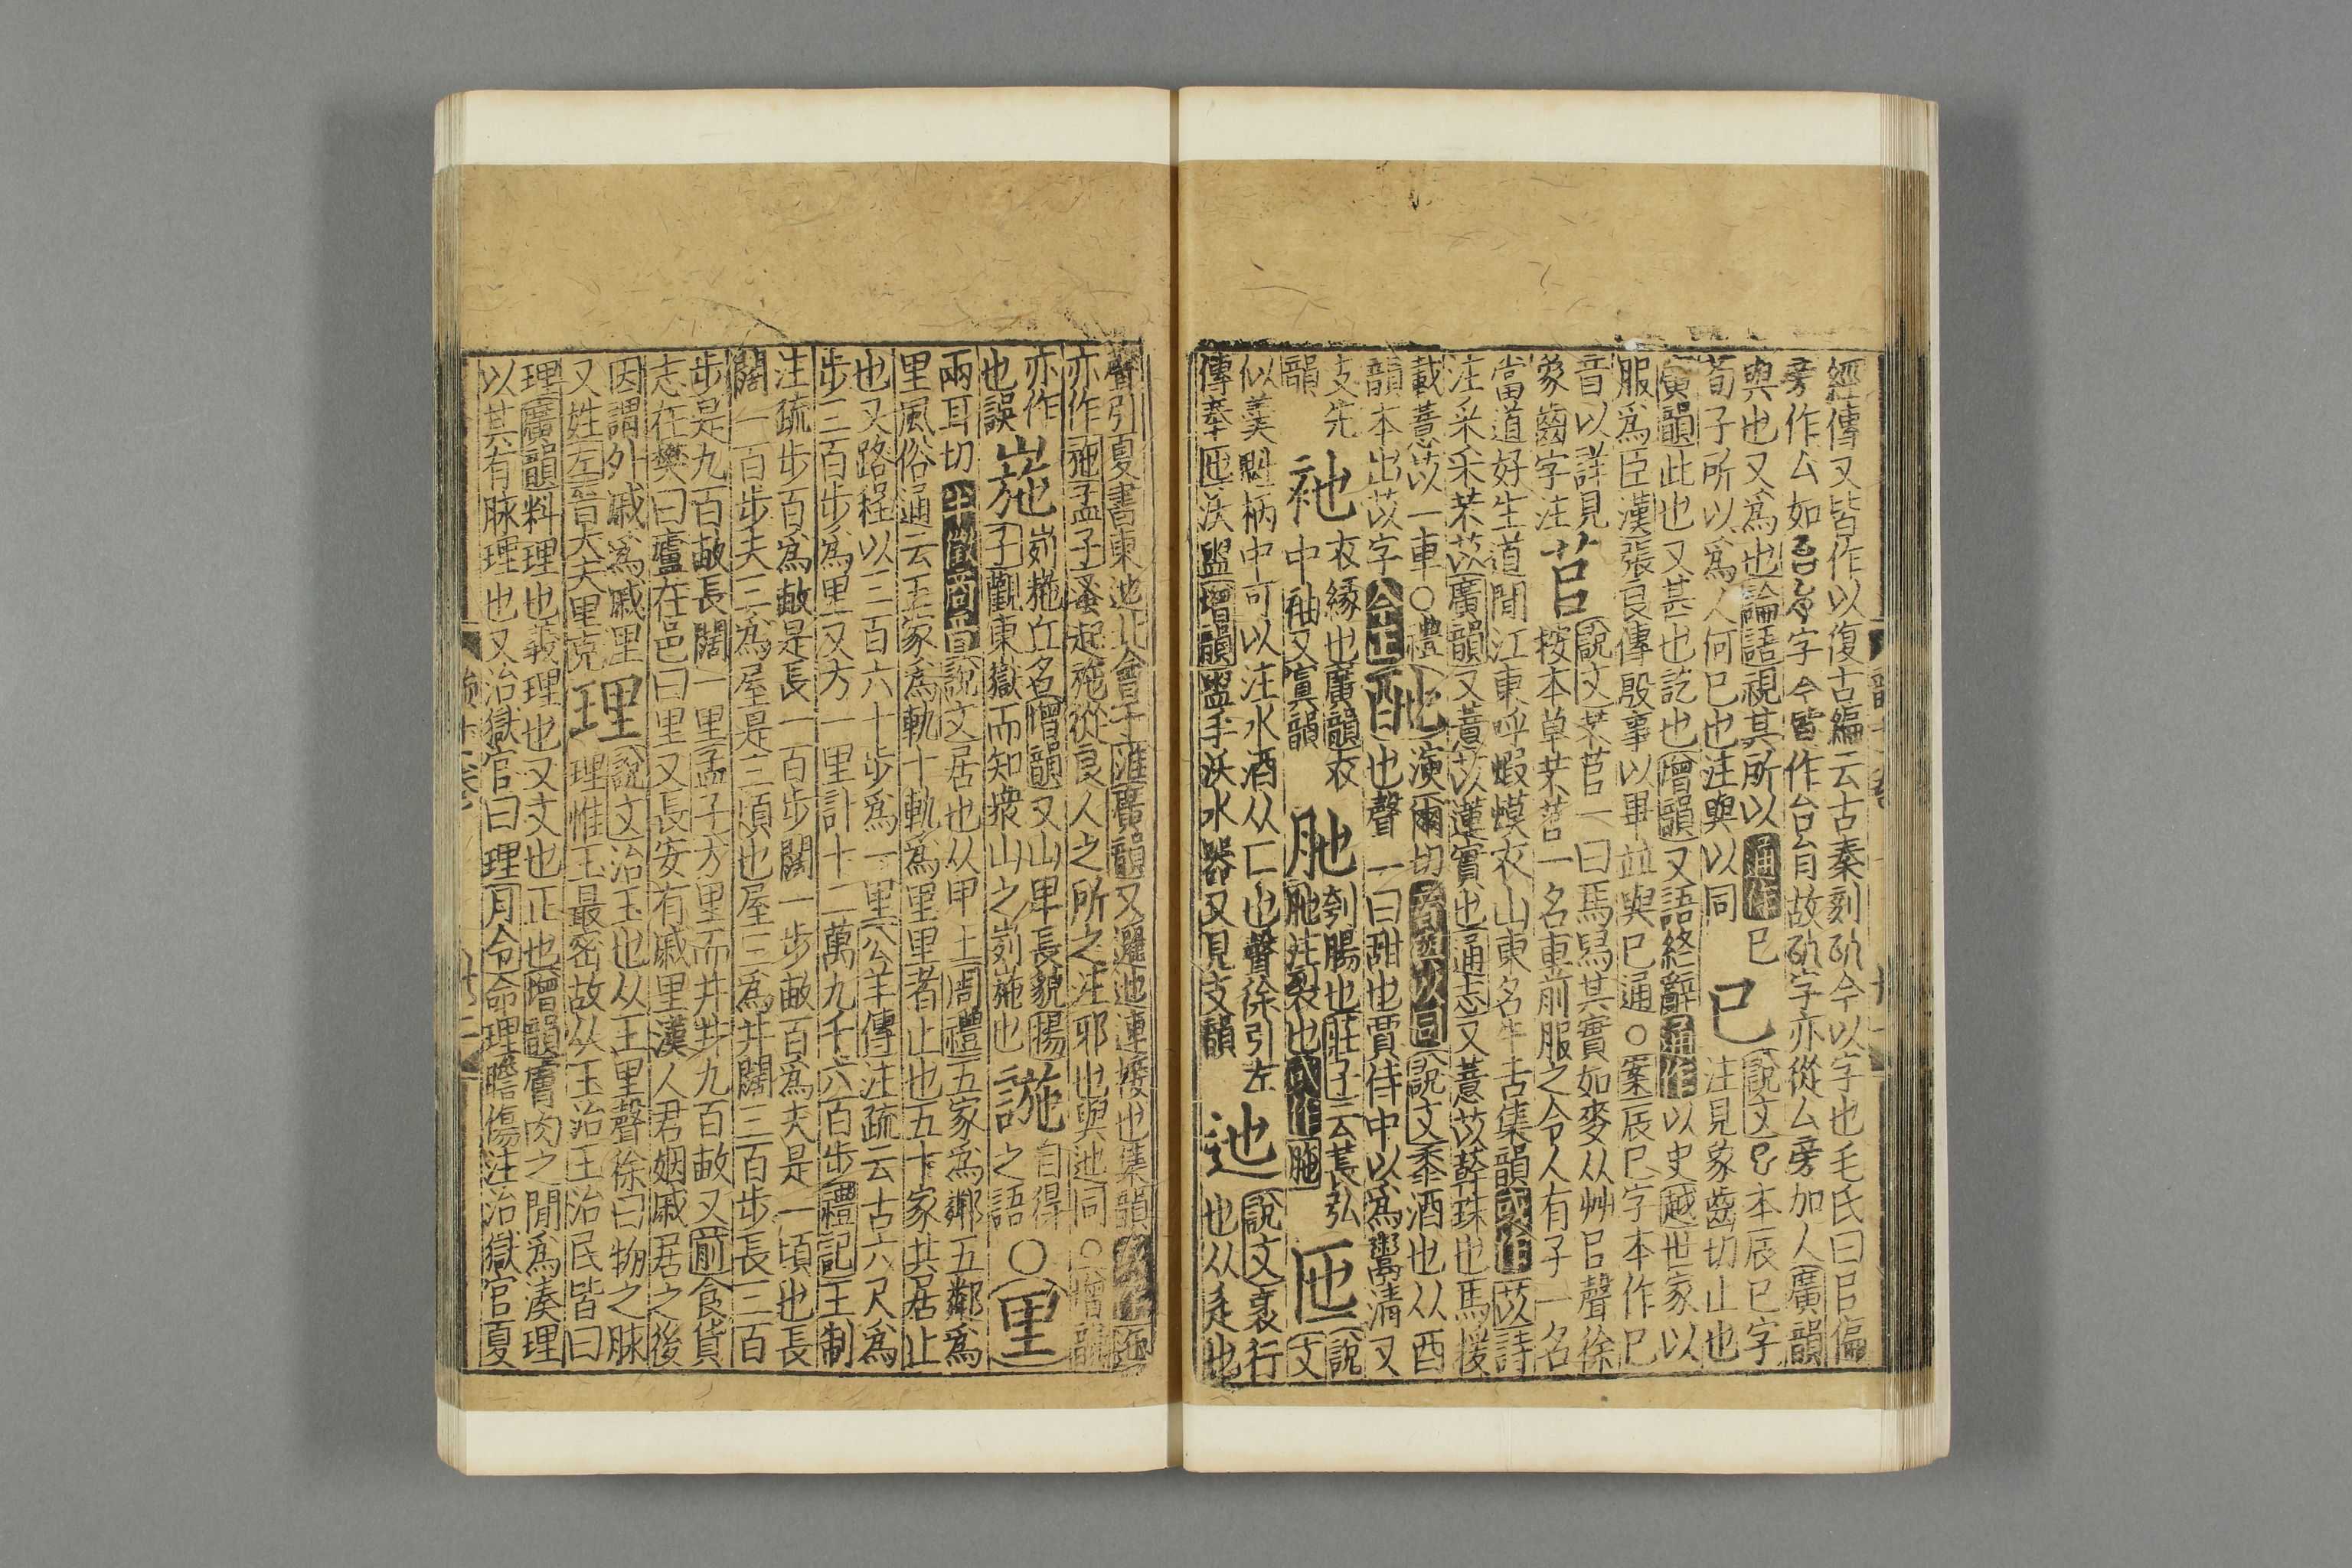 經傳又皆作以復古編云古秦刻㠯今以字也毛氏曰㠯偏
旁作厶如台㕕字今皆作台㕕故㠯字亦從厶旁加人廣韻
與也又爲也論語視其所以通作已
荀子所以爲人何已也注與以同
已說文已本辰巳字
注見象齒切止也
廣韻此也又甚也訖也增韻又語終辭通作以史越世家以
服爲臣漢張良傳殷事以畢並與已通○案辰巳字本作巳
音以詳見
象齒字注
苢說文芣苢一曰馬舄其實如麥从艸㠯聲徐
按本草芣苢一名車前服之令人有子一名
當道好生道間江東呼蝦蟆衣山東名牛舌集韻或作苡詩
注采采芣苡廣韻又薏苡蓮實也通志又薏苡簳珠也馬援
載薏苡一車○禮
韻本出苡字今正
酏演爾切音與以同說文黍酒也从酉
也聲一曰甜也賈侍中以爲鬻清又
支先
韻
袘衣緣也廣韻衣
中袖又寘韻
胣刳腸也莊子云萇弘
胣注裂也或作
匜說文
似羹魁柄中可以注水酒从匚也聲徐引左
傳奉匜沃盥增韻盥手沃水器又見支韻
迆說文衺行
也从辵也
聲引夏書東迆北會于滙廣韻又邐迆連接也集韻或作迤
亦作孟子蚤起施從良人之所之注邪也與迆同○增韻
亦作
也誤
崺峛崺丘名增韻又山卑長貌揚
子觀東嶽而知衆山之峛崺也
訑自得
之語
○里
兩耳切半徵商音說文居也从田土周禮五家爲鄰五鄰爲
里風俗通云五家爲軌十軌爲里里者止也五十家共居止
也又路程以三百六十步爲一里公羊傳注疏云古六尺爲
步三百步爲里又方一里計十二萬九千六百步禮記王制
注疏步百爲畝是長一百步闊一步畝百爲夫是一頃也長
闊一百步夫三爲屋是三頃也屋三爲井闊三百步長三百
步是九百畝長闊一里孟子方里而井井九百畝又前食貨
志在壄曰廬在邑曰里又長安有戚里漢人君姻戚居之後
因謂外戚爲戚里
又姓左晉大夫里克
理說文治玉也从王里聲徐曰物之脉
理惟玉最密故从玉治玉治民皆曰
理廣韻料理也義理也又文也正也增韻膚肉之間爲湊理
以其有脉理也又治獄官曰理月令命理瞻傷注治獄官夏